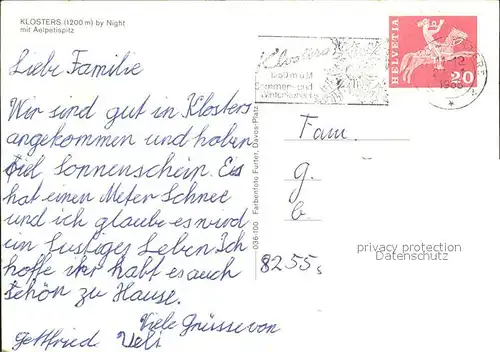 KLOSTERS (1200 m) by Night
mit Aelpetispitz
Liebe Familie
Wir sind gut in Klosters
angekommen und haben
viel Sonnenschein. Es
hat einen Meter Schnee
und ich glaube es wird
ein lustiges Leben. Ich
hoffe ihr habt es auch
schön zu Hause.
Viele Grüsse von
Gottfried Ueli
036-100 Farbenfoto Furter, Davos-Platz
Klosters
1250 m ü M
Sommer- und
Winterkurort
HELVETIA
20
11-12
Fam.
G.
b.
8255
privacy protection
Datenschutz